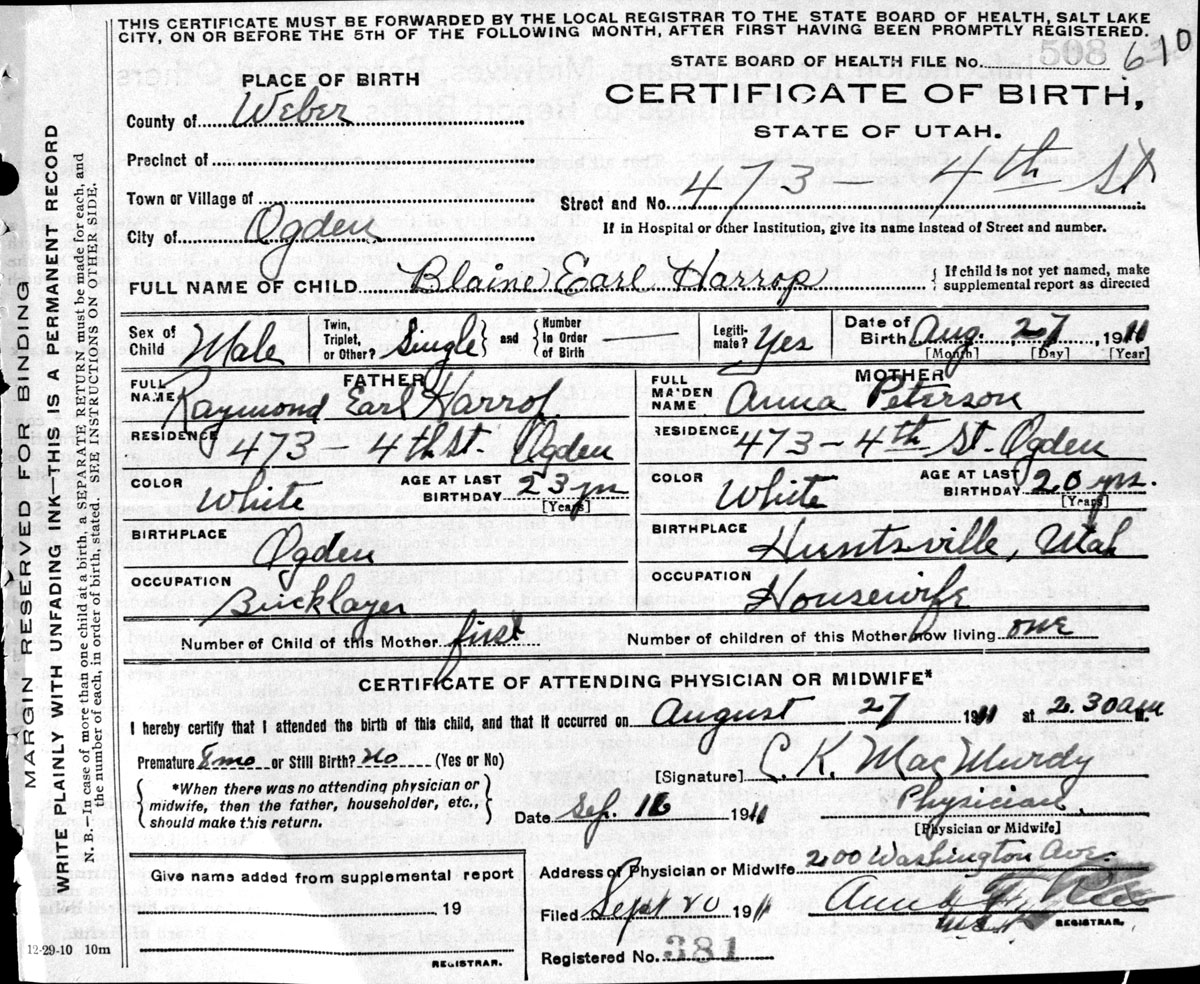 THIS CERTIFICATE MUST BE FORWARDED BY THE LOCAL REGISTRAR TO THE STATE BOARD OF HEALTH, SALT LAKE
CITY, ON OR BEFORE THE 5TH OF THE FOLLOWING MONTH, AFTER FIRST HAVING BEEN PROMPTLY REGISTERED.
STATE BOARD OF HEALTH FILE No. 508 610
PLACE OF BIRTH
CERTIFICATE OF BIRTH,
STATE OF UTAH.
County of Weber
Precinct of
Town or Village of
Street and No. 473 - 4th St
City of Ogden
If in Hospital or other Institution, give its name instead of Street and number.
FULL NAME OF CHILD Blaine Earl Harrop { If child is not yet named, make
supplemental report as directed
Sex of Child Male
Twin, Triplet, or Other? Single } and { Number in Order of Birth —
Legitimate? Yes
Date of Birth Aug. 27, 1911
[Month] [Day] [Year]
FATHER
FULL NAME Raymond Earl Harrop
RESIDENCE 473 - 4th St. Ogden
COLOR White AGE AT LAST BIRTHDAY 23 yrs
[Years]
BIRTHPLACE Ogden
OCCUPATION Bricklayer
MOTHER
FULL MAIDEN NAME Anna Peterson
RESIDENCE 473 - 4th St. Ogden
COLOR White AGE AT LAST BIRTHDAY 20 yrs.
[Years]
BIRTHPLACE Huntsville, Utah
OCCUPATION Housewife
Number of Child of this Mother first Number of children of this Mother now living one
CERTIFICATE OF ATTENDING PHYSICIAN OR MIDWIFE*
I hereby certify that I attended the birth of this child, and that it occurred on August 27 1911 at 2.30am M.
Premature 8mo or Still Birth? No (Yes or No)
[Signature] C. K. MacMurdy
{ *When there was no attending physician or
midwife, then the father, householder, etc.,
should make this return. }
Date Sep. 16 1911 Physician
[Physician or Midwife]
Address of Physician or Midwife 2400 Washington Ave.
Filed Sept 20 1911
REGISTRAR.
Registered No. 381
Give name added from supplemental report
19
REGISTRAR.
12-29-10 10m
MARGIN RESERVED FOR BINDING
WRITE PLAINLY WITH UNFADING INK—THIS IS A PERMANENT RECORD
N. B.—In case of more than one child at a birth, a SEPARATE RETURN must be made for each, and
the number of each, in order of birth, stated. SEE INSTRUCTIONS ON OTHER SIDE.